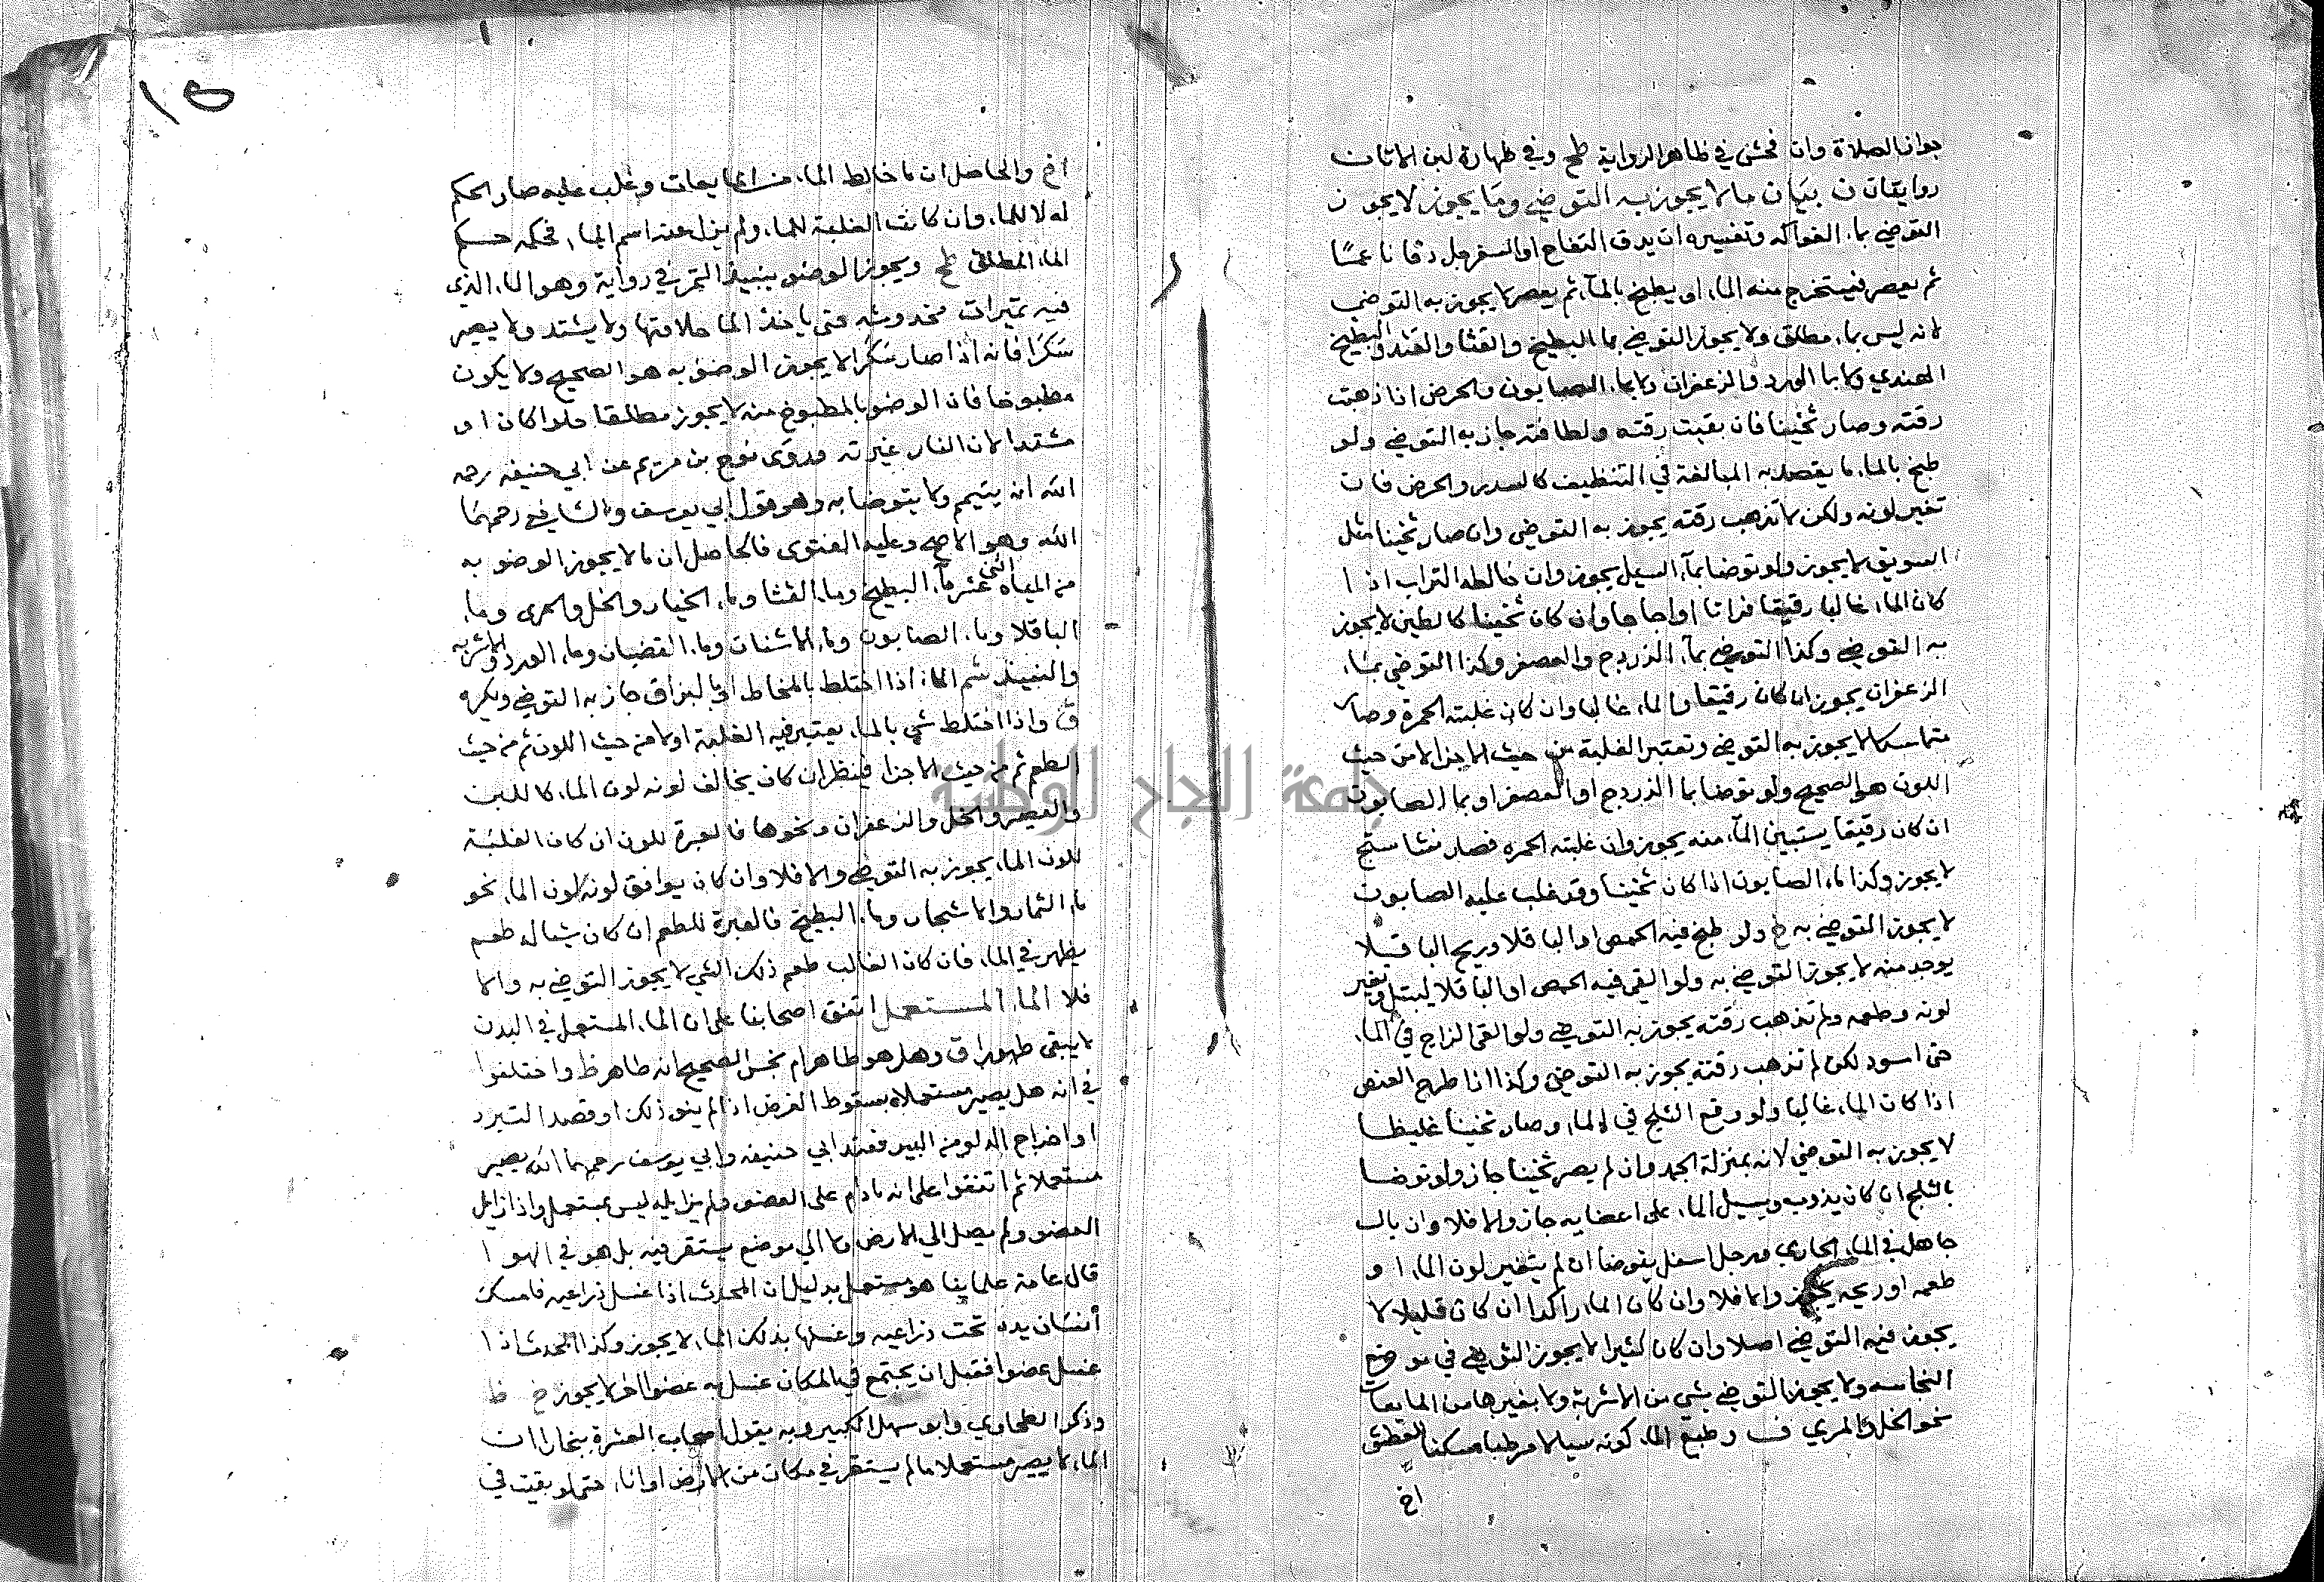 جواز الصلاة وان فحش في ظاهر الرواية طح وفي طهارة لبن الاتان
روايتان ن بيان ما لا يجوز به التوضي وما يجوز لا يجوز
التوضي بماء الفواكه وتفسيره ان يدق التفاح او السفرجل دقا ناعمًا
ثم يعصر فيستخرج منه الماء او يطبخ بالمآء ثم يعصر لا يجوز به التوضي
لانه ليس بماء مطلق ولا يجوز التوضي بما البطيخ والقثا والقثد والبطيخ
الهندي ولا بما الورد والزعفران ولا بماء الصابون والحرض اذا ذهبت
رقته وصار ثخينا فان بقيت رقته ولطافته جاز به التوضي ولو
طبخ بالماء ما يقصد به المبالغة في التنظيف كالسدر والحرض فان
تغير لونه ولكن لا تذهب رقته يجوز به التوضي وان صار ثخينا مثل
السويق لا يجوز ولو توضا بمآء السيل يجوز وان خالطه التراب اذا
كان الماء غالبا رقيقا فراتا او اجاجا وان كان ثخينا كالطين لا يجوز
به التوضي وكذا التوضي بمآء الزردج والعصفر وكذا التوضي بماء
الزعفران يجوز ان كان رقيقا والماء غالبا وان كان غلبته الحمرة وصار
متماسكا لا يجوز به التوضي وتعتبر الغلبة من حيث الاجزا لا من حيث
اللون هو الصحيح ولو توضا بما الزردج او العصفر او بما الصابون
ان كان رقيقا يستبين المآء منه يجوز وان غلبته الحمره فصار نشاستج
لا يجوز وكذا ماء الصابون اذا كان ثخينا وقد غلب عليه الصابون
لا يجوز التوضي به خ ولو طبخ فيه الحمص او الباقلا وريح الباقلا
يوجد منه لا يجوز التوضي به ولو القي فيه الحمص او الباقلا ليبتل وتغير
لونه وطعمه ولم تذهب رقته يجوز به التوضي ولو القى الزاج في الماء
حتى اسود لكن لم تذهب رقته يجوز به التوضي وكذا اذا طرح العفص
اذا كان الماء غالبا ولو وقع الثلج في الماء وصار ثخينا غليظا
لا يجوز به التوضي لانه بمنزلة الجمد وان لم يصر ثخينا جاز ولو توضا
بالثلج ان كان يذوب ويسيل الماء على اعضايه جاز والا فلا وان بال
جاهل في الماء الجاري ورجل اسفل يتوضا ان لم يتغير لون الماء او
طعمه او ريحه يجوز والا فلا وان كان الماء راكدا ان كان قليلا لا
يجوز فيه التوضي اصلا وان كان كثيرا لا يجوز التوضي في موضع
النجاسه ولا يجوز التوضي بشي من الاشربة ولا بغيرها من المايعات
نحو الخل والمري ف وطبع الماء كونه سيالا مرطبا مسكنا للعطش
اخ
١٥
اخ والحاصل ان ما خالط الماء من المايعات وغلب عليه صار الحكم
له لا للماء وان كانت الغلبة للماء ولم يزل عنه اسم الماء فحكمه حكم
الماء المطلق طح ويجوز الوضو بنبيذ التمر في رواية وهو الماء الذي
فيه تميرات حتى ياخذ الما حلاوتها ولا يشتد ولا يصير
سَكرًا فانه اذا صار سَكرًا لا يجوز الوضو به هو الصحيح ولا يكون
مطبوخا فان الوضو بالمطبوخ منه لا يجوز مطلقا حلوا كان او
مشتدا لان النار غيرته وروَى نوح بن مريم عن ابي حنيفه رحمه
الله انه يتيمم ولا يتوضا به وهو قول ابي يوسف والشافعي رحمهما
الله وهو الاصح وعليه الفتوى فالحاصل ان ما لا يجوز الوضو به
من المياه اثني عشر مآء البطيخ وماء القثا وماء الخيار والخل والمرى وماء
الباقلا وماء الصابون وماء الاشنان وماء القضبان وماء الورد والاشربه
والنبيذ ثم الماء اذا اختلط بالمخاط او بالبزاق جاز به التوضي ويكره
ق واذا اختلط شي بالماء يعتبر فيه الغلبة اولا من حيث اللون ثم من حيث
الطعم ثم من حيث الاجزا فينظر ان كان يخالف لونه لون الماء كاللبن
والعصير والخل والزعفران ونحوها فالعبرة للون ان كان الغلبة
للون الماء يجوز به التوضي والا فلا وان كان يوافق لونه لون الماء نحو
ماء الثمار والاشجار وماء البطيخ فالعبرة للطعم ان كان شيا له طعم
يظهر في الماء فان كان الغالب طعم ذلك الشي لا يجوز التوضي به والا
فلا الماء المستعمل اتفق اصحابنا على ان الماء المستعمل في البدن
لا يبقى طهورا ق وهل هو طاهر ام نجس الصحيح انه طاهر ظ واختلفوا
في انه هل يصير مستعملا بسقوط الفرض اذا لم ينو ذلك او قصد التبرد
او اخراج الدلو من البير فعند ابي حنيفه وابي يوسف رحمهما الله يصير
مستعملا ثم اتفقوا على انه ما دام على العضو ولم يزايله ليس بمستعمل واذا زايل
العضو ولم يصل الي الارض ولا الي موضع يستقر فيه بل هو في الهوا
قال عامة علماينا هو مستعمل بدليل ان المحدث اذا غسل ذراعيه فامسك
أنسان يده تحت ذراعيه وغسلها بذلك الماء لا يجوز وكذا المحدث اذا
غسل عضوا فقبل ان يجتمع في المكان غسل به عضوا اخر لا يجوز خ ظ
وذكر الطحاوي وابو سهل الكبير وبه يقول اصحاب العشرة ببخارا ان
الماء لا يصير مستعملا ما لم يستقر في مكان من الارض او اناء حتى لو بقيت في
جامعة النجاح الوطنية